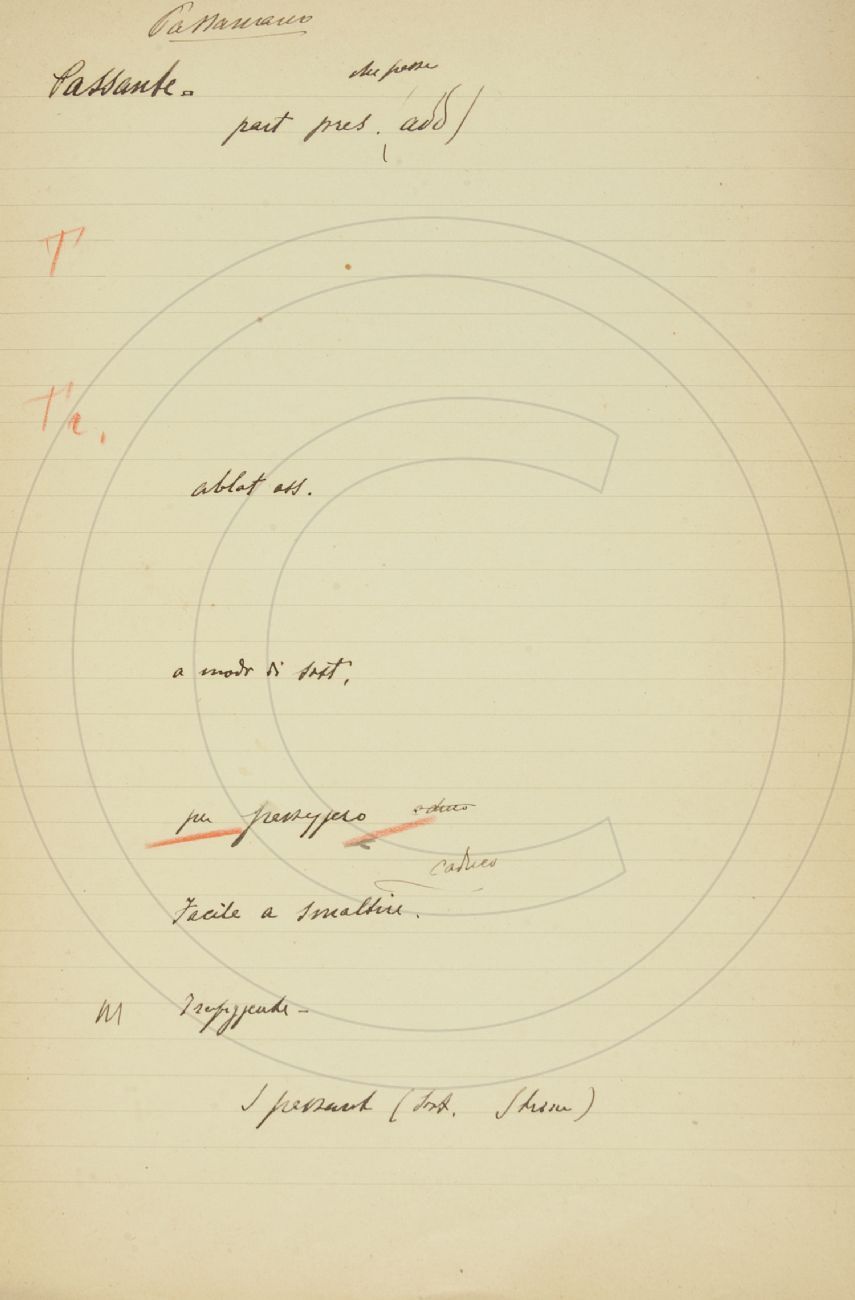 Passamano
Passante.
che passa
part pres. add)
T
Tr.
ablat ass.
a modo di sost.
per passeggero
caduco
Facile a smaltire.
M Trafiggente -
(sost.